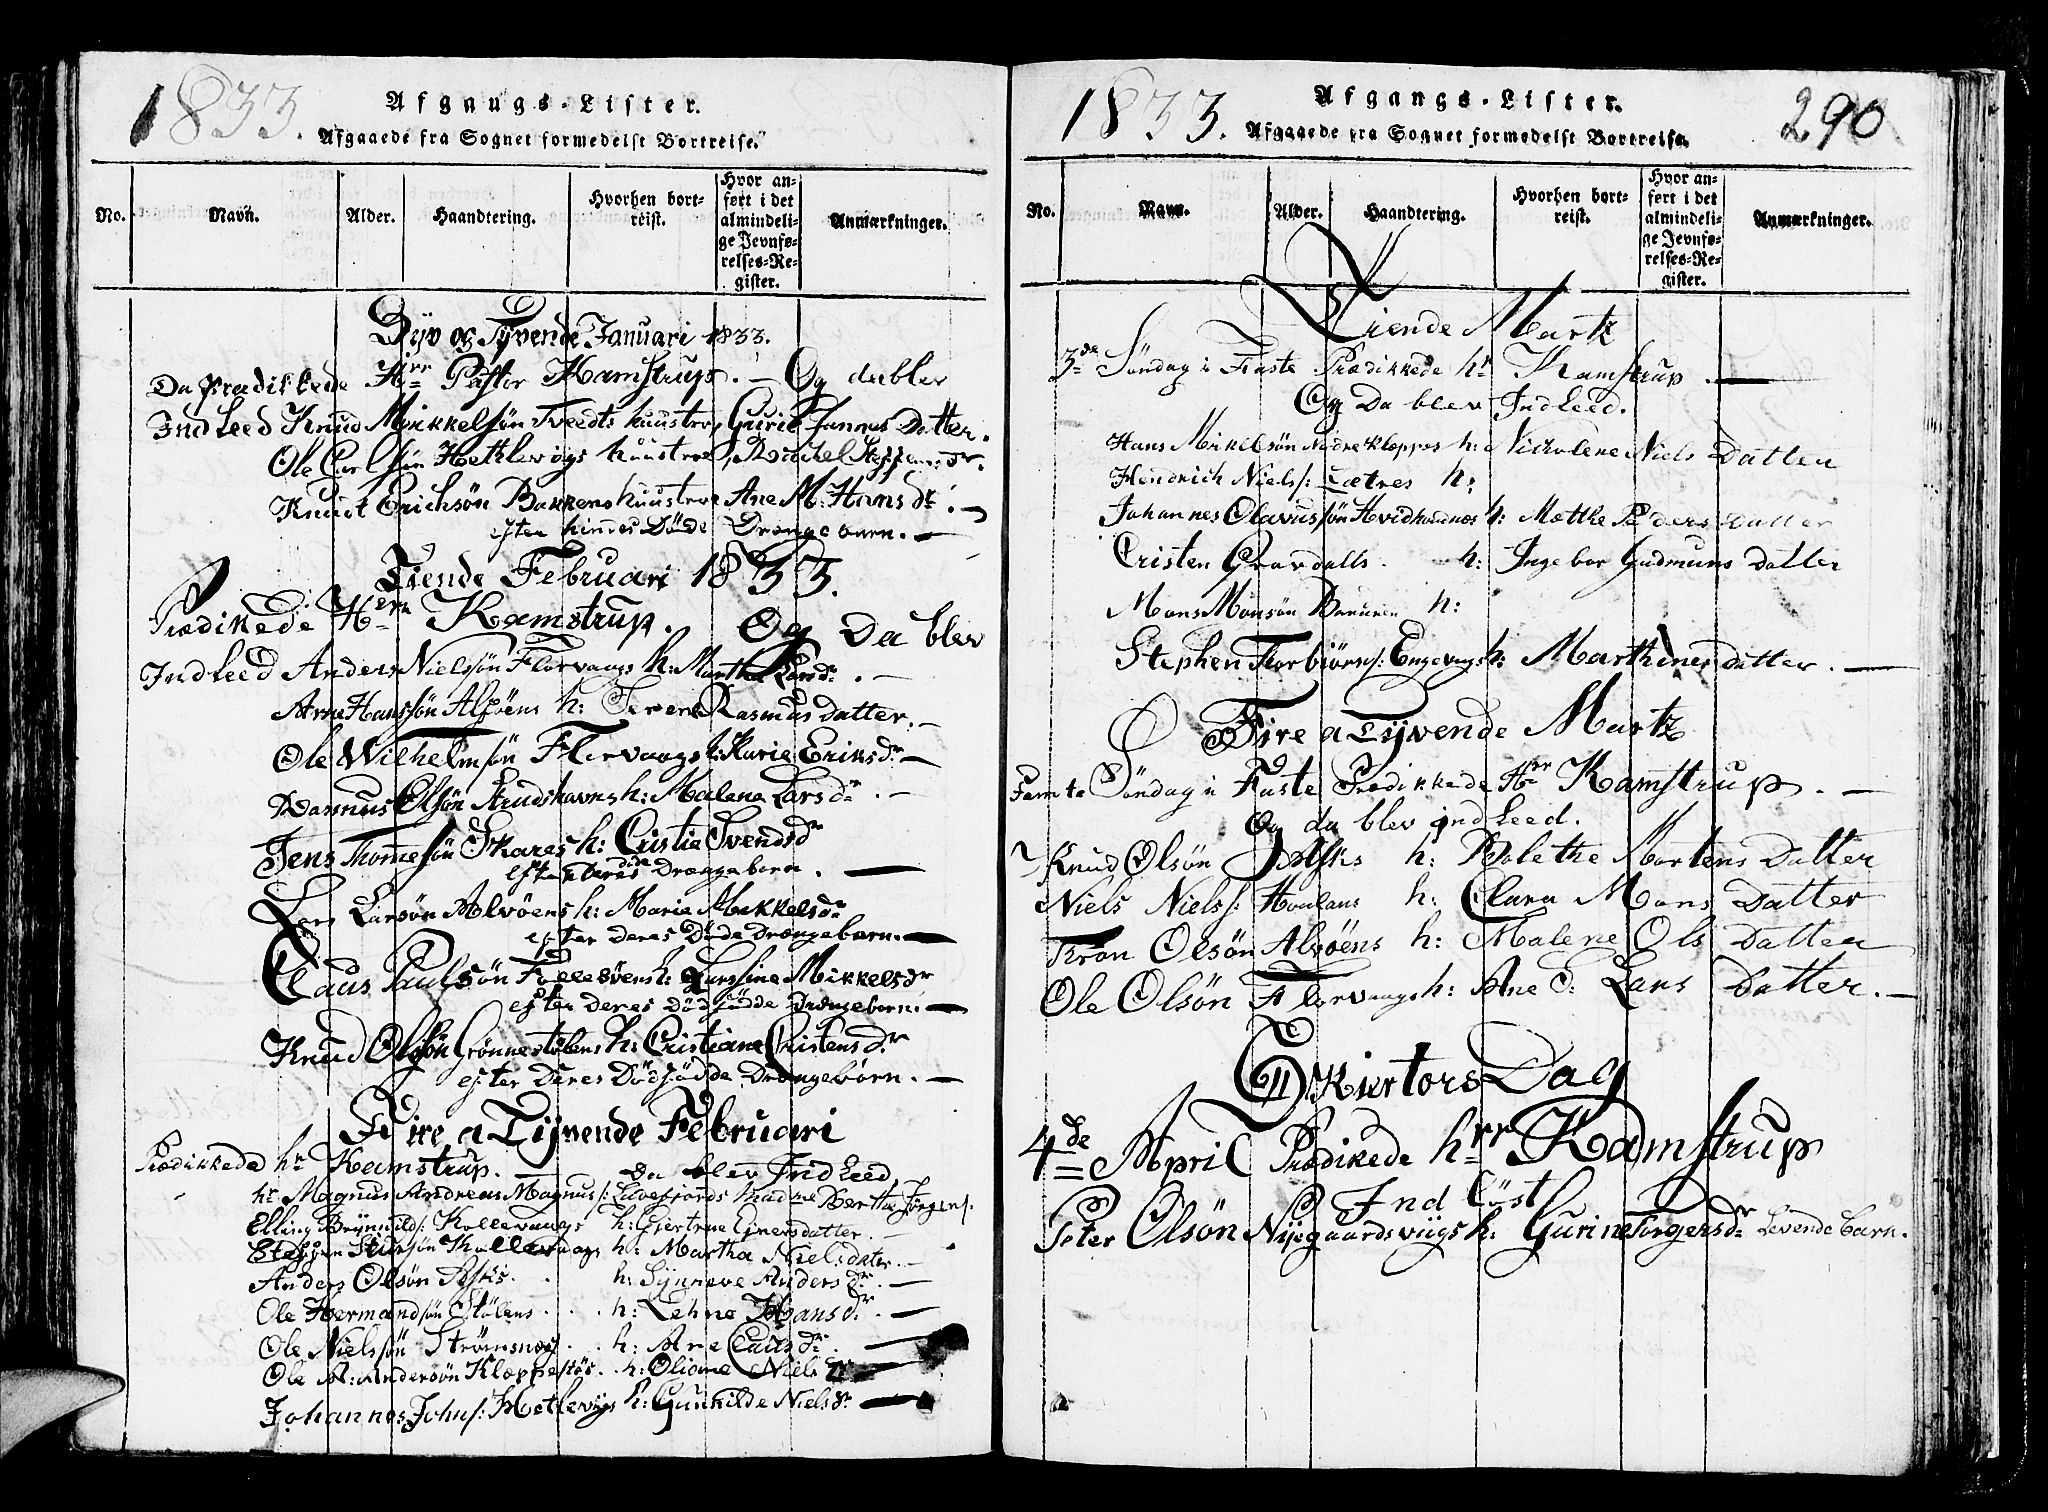 1833.
Afgangs-Lister.
Afgaaede fra Sognet formedelst Bortreise.
No.
Navn.
Alder.
Haandtering.
Hvorhen bort-
reist.
Hvor an-
ført i det
almindeli-
ge Jevnfø-
relses-Re-
gister.
Anmærkninger.
Syv og Tyvende Januari 1833.
Da Prædikkede Hrr Pastor Kamstrup. – Og da blev
IndLeed Knud Mikkelsøn Tveedts huustroe, Gurie Datter.
Ole Carlsøn Hetlevigs huustroe, Rachel Steffens Dr.
Knudt Erichsøn Bakkens huustroe Ane M: Hans dr. –
efter hindes Døde Drængebarn. –
Tiende Februari 1833.
Prædikede Herr Kamstrup. Og Da blev
IndLeed Anders Nielsøn Florvaags h: Martha Larsdr. –
Arne Hanssøn Alføens h: Seren Rasmus datter. –
Ole Wilhelmsøn Florvaags h: Karie Eriks dr –
Rasmus Olsøn Strudshavns h: Malena Lars dr. –
Jens Thommesøn Skares h: Cristie Svends dr
efter Deres Drængebarn. –
Lars Larsøn Alvøens h: Marie Mikkelsdr
efter Deres Døde Drængebarn. –
Claus Paulsøn Follesøens h: Mikkelsdr
efter Deres Dødfødde Drængebarn. –
Knud Olsøn Grønnestølens h: Cristiane Cristens dr
efter Deres Dødfødde Drængebørn. –
Fire a Tyvende Februari
Prædikkede hr Kamstrup. – Da blev IndLeed
hr Magnus Andreas Magnus s: Madme Berthe Jørgens.
Elling Brynnilds: Kollevaags h: Giertrue Ejnersdatter. –
Steffen Kollevaags h: Martha Nielsdater. –
Anders Olsøn Asks. . h: Synneve Anders dr. –
Ole Hermandsøn Stølens . . . h: Lehne Hans dr. –
Ole Nielsøn Strømsnes . . h: Ane Claus dr. –
Ole A: Andersøn Kleppestøs . . h: Oliane Niels dr
Johannes Johns: Hetlevigs h: Gunnilde Niels dr –
1833.
Afgangs-Lister.
290
Afgaaede fra Sognet formedelst Bortreise.
No.
Navn.
Alder.
Haandtering.
Hvorhen bort-
reist.
Hvor an-
ført i det
almindeli-
ge Jevnfø-
relses-Re-
gister.
Anmærkninger.
Tiende Martz
3de Søndag i Faste Prædikkede hr Kamstrup . –
Og Da blev IndLeed.
Hans Mikelsøn Nedre Kleppes h: Nickolene Niels Datter
Hendrich Niels s: Lætres h:
Johannes Olavussøn Hvidhovdnes h: Mætthe Pedersdatter
Cristen Gravdalls . h: Ingebor Gudmuns Datter
Mons Monsøn h:
Stephen Torbiørns: Engevigs h: Marthines datter. –
Fire a Tyvende Martz
Femte Søndag i Faste Prædikkede Hrr Kamstrup . –
Og da blev indLeed.
Knud Olsøn Asks h: Bolethe Martens Datter
Niels Niels s: h: Clara Mons Datter
Tron Olsøn Alvøens h: Malene Ols Datter
Ole Olsøn Florvaags h: Ane D: Lars Datter. –
SkiertorsDag
4de April Prædikede hrr Kamstrup
Ind Løst
Peter Olsøn Nyegaardsviigs h: Gurine Torgersdr Levende barn.